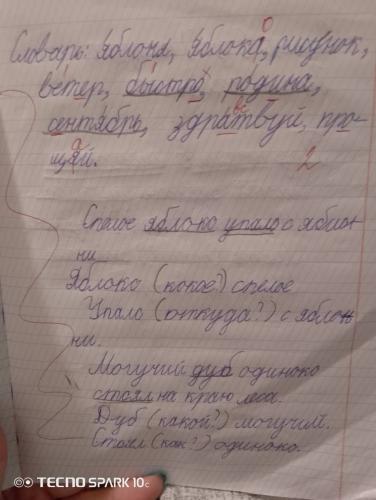 о
Словарь: Яблоня, Яблока, рисунок,
ветер, быстро, родина,
сентябрь, здратвуй, про-
щяй. 2
Спелое яблоко упало с яблон
ни
Яблоко (какое?) спелое
Упало (откуда?) с яблон
ни.
Могучий дуб одиноко
стоял на краю леса.
Дуб (какой?) могучий.
Стоял (как?) одиноко.
TECNO SPARK 10c